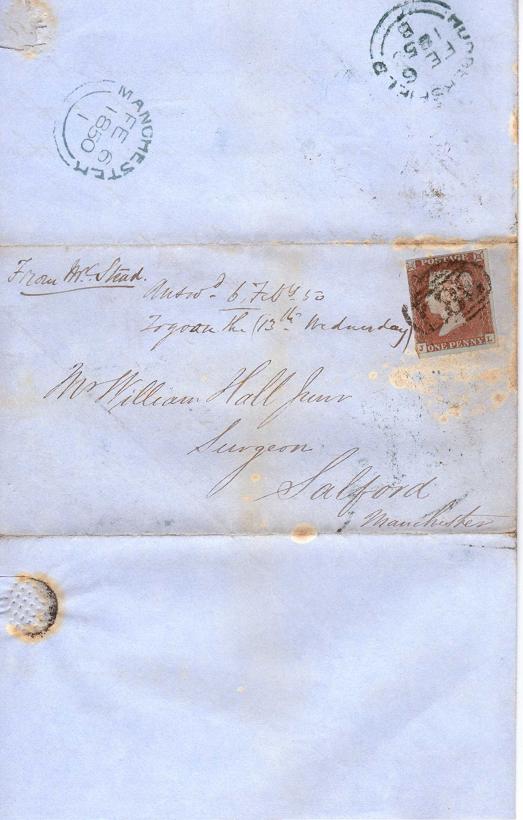 HUDDERSFIELD
FE 6
MANCHESTER
FE 6
1850
1
From Mr. Stead.
Answd. 6, Feby. 50
To go on the (13th Wednesday)
POSTAGE
ONE PENNY
J L
Mr William Hall Junr
Surgeon
Salford
Manchester